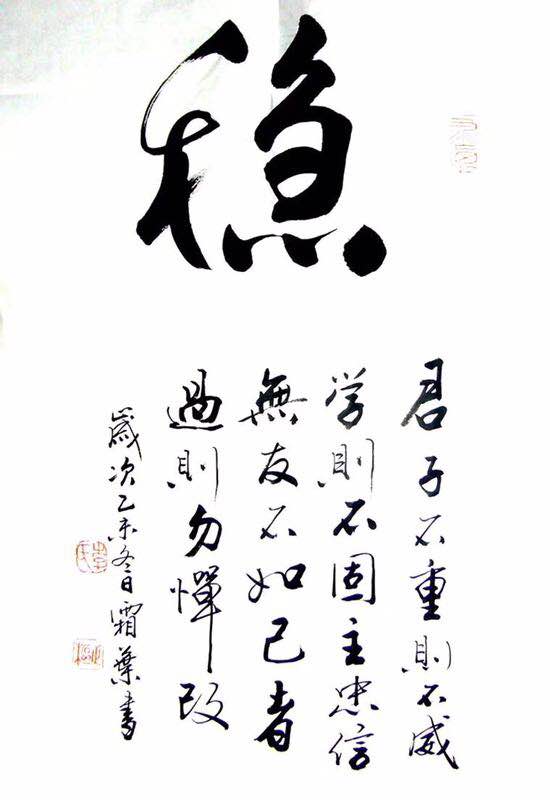 稳
君子不重則不威
学則不固主忠信
無友不如己者
過則勿憚改
歲次乙未冬日霜葉書